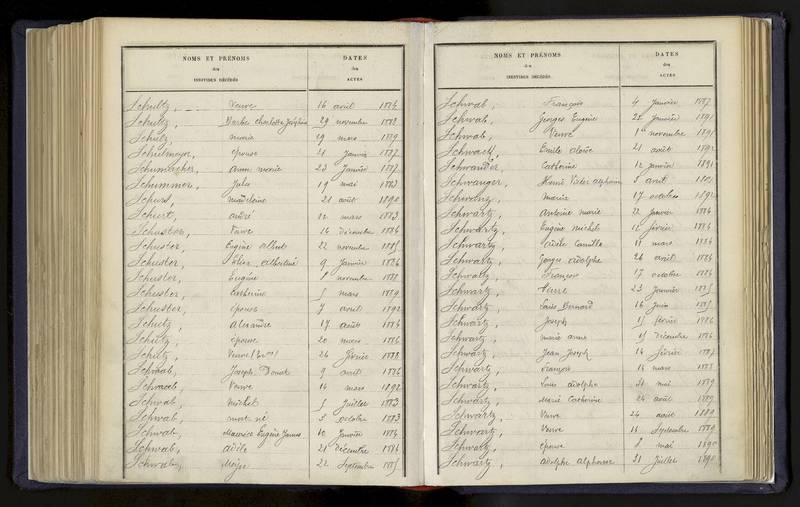 NOMS ET PRÉNOMS
des
INDIVIDUS DÉCÉDÉS
DATES
des
ACTES
Schultz, Veuve 16 août 1884
Schultz, Barbe Charlotte Joséphine 29 novembre 1888
Schulz, marie 19 mars 1889
Schulmeyer, épouse 21 Janvier 1887
Schumacher, anne marie 23 Janvier 1887
Schummer, Jules 19 mai 1883
madeleine 21 août 1890
andré 12 mars 1883
Schuster, Veuve 14 décembre 1886
Schuster, Eugène albert 22 novembre 1885
Schuster, 9 Janvier 1886
Schuster, Eugène novembre 1888
Schuster, Catherine 5 mars 1889
Schuster, épouse 7 avril 1892
Schutz, alexandre 17 août 1884
Schutz, épouse 20 mars 1886
Schutz, Veuve 26 février 1888
Schwab, Joseph 9 avril 1886
Schwab, Veuve 14 mars 1892
Schwab, michel 5 Juillet 1883
Schwab, mort né 3 octobre 1883
Schwab, Maurice Eugène James 10 Janvier 1884
Schwab, adèle 21 décembre 1884
Schwab, Moïse 22 Septembre 1885
NOMS ET PRÉNOMS
des
INDIVIDUS DÉCÉDÉS
DATES
des
ACTES
Schwab, François 4 Janvier 1887
Schwab, Georges Eugène 22 Janvier 1891
Schwab, Veuve 1er novembre 1891
Emile 21 août 1892
Schwander, Catherine 12 Janvier 1891
Schwanger, alphonse avril
Maria 17 octobre 1892
Schwartz, Antoine marie 22 Janvier 1884
Schwartz, Eugène michel 12 février 1884
Schwartz, adèle Camille 11 mars 1884
Schwartz, Georges adolphe 26 avril 1884
Schwartz, François 17 octobre 1884
Schwartz, Pierre 23 Janvier 1885
Schwartz, Louis Bernard 16 Juin 1885
Schwartz, Joseph 15 février 1886
Schwartz, marie anne 15 décembre 1886
Schwartz, Jean Joseph 14 février 1887
Schwartz, François 14 mars 1888
Schwartz, Louis adolphe 21 mai 1889
Schwartz, Marie Catherine 24 août 1889
Schwartz, Veuve 24 août 1889
Schwartz, Veuve 14 Septembre 1889
Schwartz, épouse 8 mai 1890
Schwartz, adolphe alphonse 21 Juillet 1890